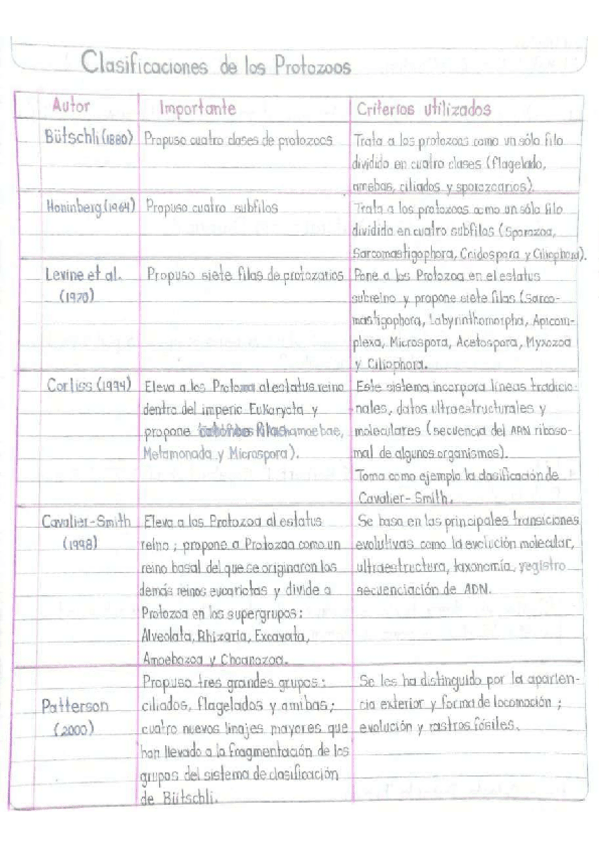 Clasificaciones de los Protozoos
Autor
Importante
Criterios utilizados
Bütschli (1880)
Propuso cuatro clases de protozoos
Trata a los protozoos como un sólo filo
dividido en cuatro clases (flagelado,
amebas, ciliados y sporozoarios).
Honinberg (1964)
Propuso cuatro subfilos
Trata a los protozoos como un sólo filo
dividido en cuatro subfilos (Sporozoa,
Sarcomastigophora, Cnidospora y Ciliophora).
Levine et al.
(1970)
Propuso siete filas de protozoarios
Pone a los Protozoa en el estatus
subreino y propone siete filas (Sarco-
mastigophora, Labyrinthomorpha, Apicom-
plexa, Microspora, Acetospora, Myxozoa
y Ciliophora.
Corliss (1994)
Eleva a los Protozoa al estatus reino
dentro del imperio Eukaryota y
propone
Metamonada y Microspora).
Este sistema incorpora líneas tradicio-
nales, datos ultraestructurales y
moleculares (secuencia del ARN riboso-
mal de algunos organismos).
Toma como ejemplo la clasificación de
Cavalier-Smith.
Cavalier-Smith
(1998)
Eleva a los Protozoa al estatus
reino; propone a Protozoa como un
reino basal del que se originaron los
demás reinos eucariotas y divide a
Protozoa en los supergrupos:
Alveolata, Rhizaria, Excavata,
Amoebozoa y Choanozoa.
Se basa en las principales transiciones
evolutivas como la evolución molecular,
ultraestructura, taxonomía, y registro
secuenciación de ADN.
Patterson
(2000)
Propuso tres grandes grupos:
ciliados, flagelados y amibas;
cuatro nuevos linajes mayores que
han llevado a la fragmentación de los
grupos del sistema de clasificación
de Bütschli.
Se les ha distinguido por la aparien-
cia exterior y forma de locomoción;
evolución y rastros fósiles.